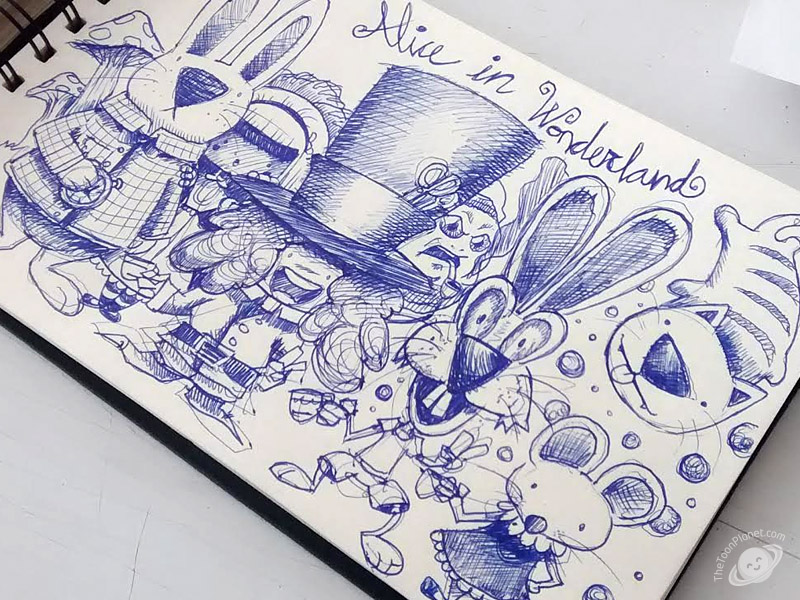 Alice in Wonderland
TheToonPlanet.com